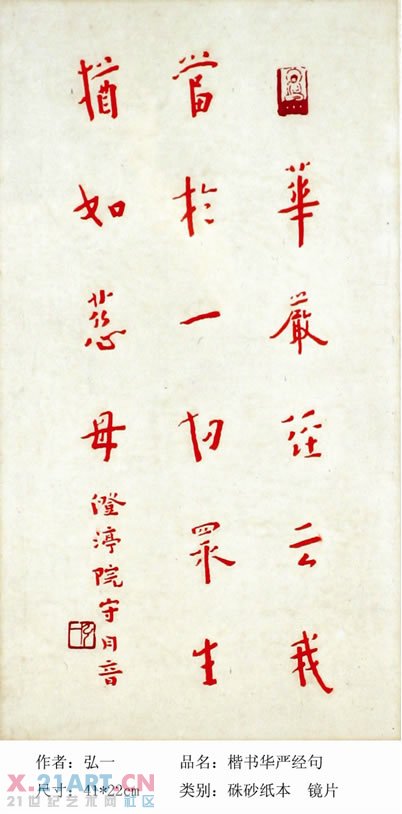 華嚴經云我
當於一切眾生
猶如慈母
澄渟院守月音
作者：弘一 品名：楷书华严经句
尺寸：41*22cm 类别：硃砂纸本 镜片
X.21ART.CN
21世纪艺术网社区